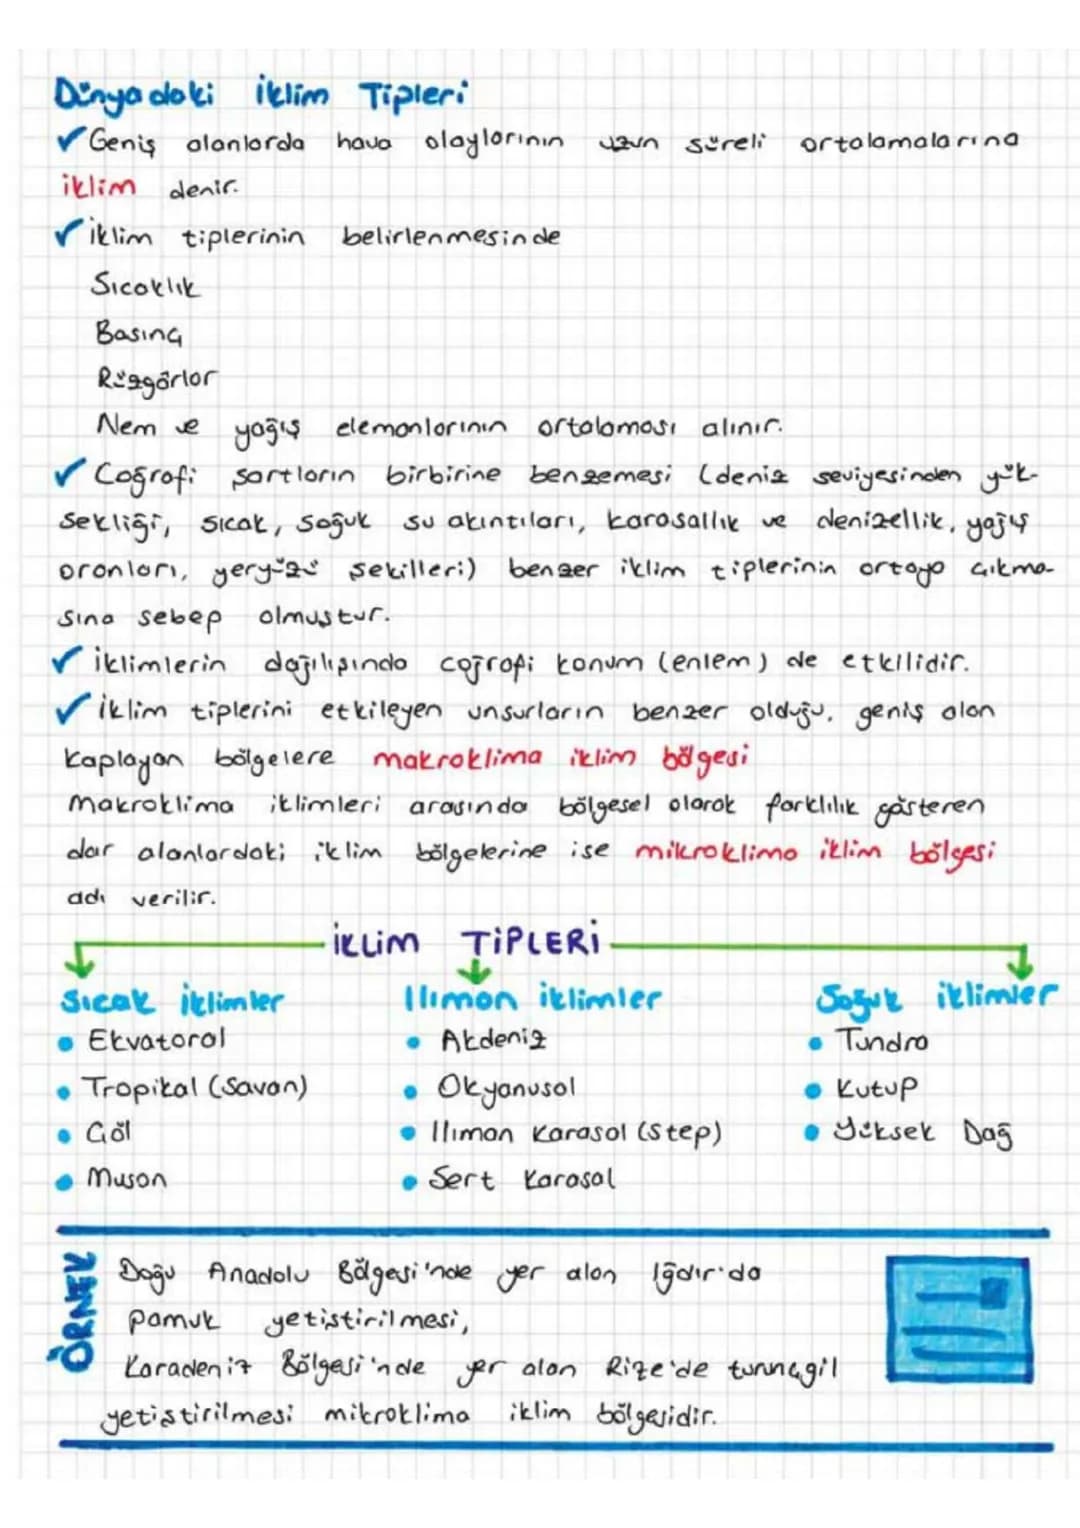 Dünyadaki İklim Tipleri
✓ Geniş alanlarda hava olaylarının uzun süreli ortalamalarına
iklim denir.
✓ İklim tiplerinin belirlenmesinde
Sıcaklık
Basınç
Rüzgârlar
Nem ve yağış elemanlarının ortalaması alınır.
✓ Coğrafi şartların birbirine benzemesi (deniz seviyesinden yük-
sekliği, sıcak, soğuk su akıntıları, karasallık ve denizellik, yağış
oranları, yeryüzü şekilleri) benzer iklim tiplerinin ortaya çıkma-
sına sebep olmuştur.
✓ İklimlerin dağılışında coğrafi konum (enlem) de etkilidir.
✓ İklim tiplerini etkileyen unsurların benzer olduğu, geniş alan
kaplayan bölgelere makroklima iklim bölgesi
Makroklima iklimleri arasında bölgesel olarak farklılık gösteren
dar alanlardaki iklim bölgelerine ise mikroklima iklim bölgesi
adı verilir.
İKLİM TİPLERİ
Sıcak İklimler
• Ekvatoral
• Tropikal (Savan)
• Çöl
• Muson
Ilıman iklimler
• Akdeniz
• Okyanusal
• Ilıman Karasal (Step)
• Sert Karasal
Soğuk iklimler
• Tundra
• Kutup
• Yüksek Dağ
ÖRNEK
Doğu Anadolu Bölgesi'nde yer alan Iğdır'da
pamuk yetiştirilmesi,
Karadeniz Bölgesi'nde yer alan Rize'de turunçgil
yetiştirilmesi mikroklima iklim bölgesidir.